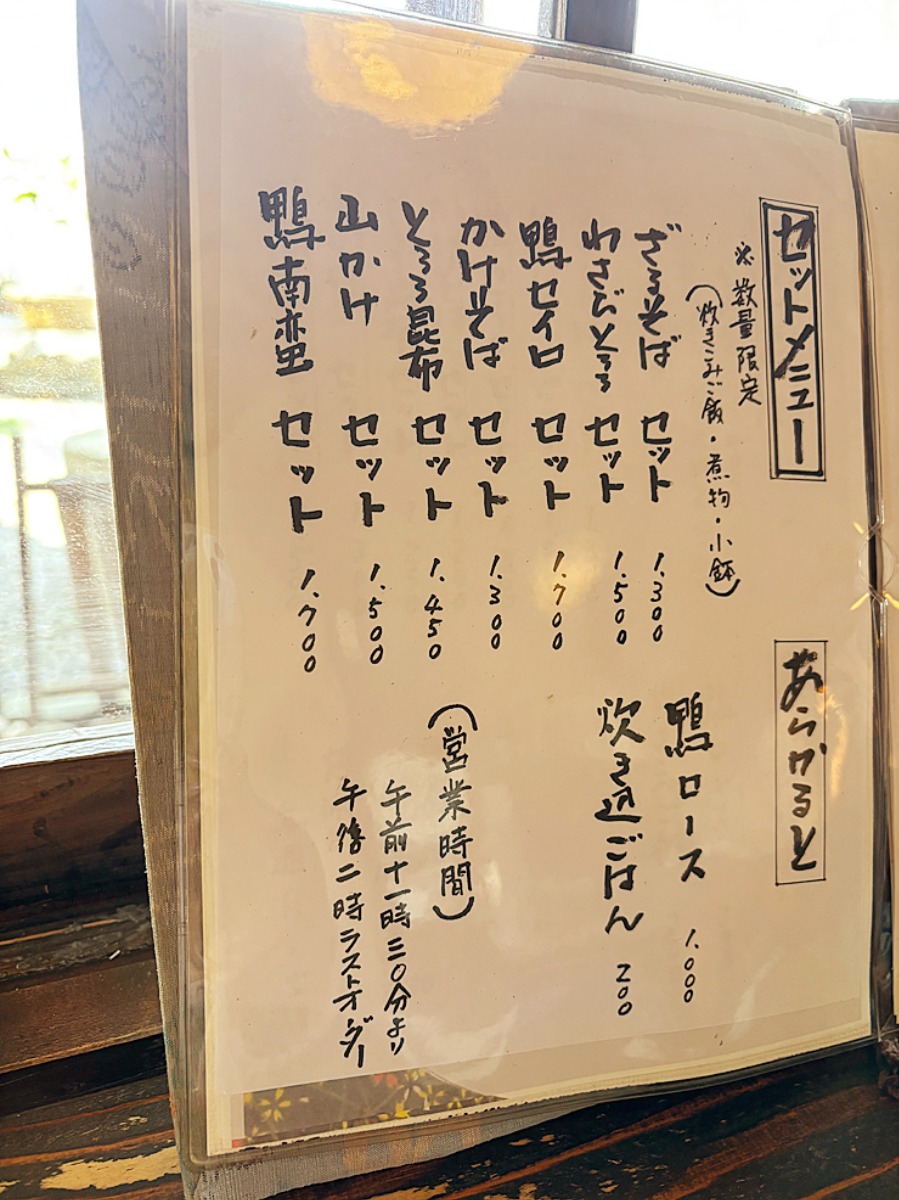 セットメニュー
※数量限定
(炊きこみご飯・煮物・小鉢)
ざるそば セット 1.300
わさびとろろ セット 1.500
鴨セイロ セット 1.700
かけそば セット 1.300
とろろ昆布 セット 1.450
山かけ セット 1.500
鴨南蛮 セット 1.700
あらかると
鴨ロース 1.000
炊き込ごはん 200
(営業時間)
午前十一時三〇分より
午後二時ラストオーダー